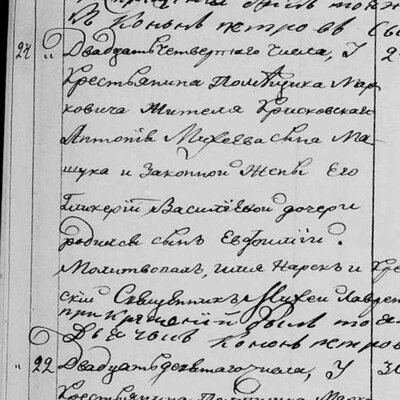 Кононъ петровъ
21 " Двадцать четвертаго числа, У 2
Крестьянина Помѣщика Мар
ковича Жителя Крисковскаго
Антонія Михеева сына Ма
щука и Законной Жены Его
Гликеріи Василіевой дочери
родился сынъ Евфимій.
Молитвовалъ, имя Нарекъ и Кре
скій Священникъ Михеи Лаврен
при крещеніи былъ тоя
Дьячокъ Кононъ петров
" 22 Двадцать девятаго числа, У 3
Крестьянина Помѣщика Марко